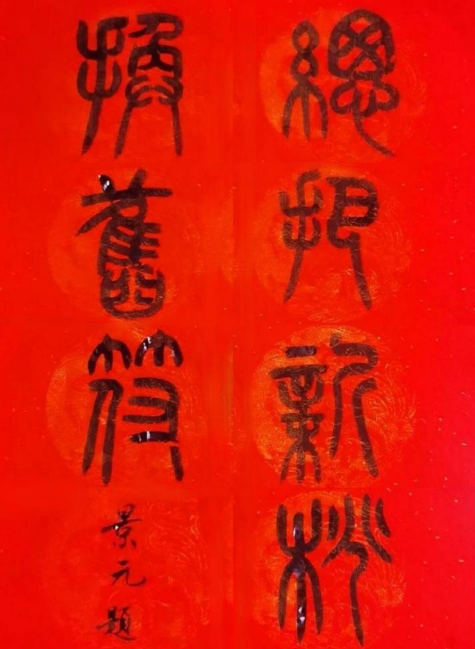 總把新桃
換舊符
景元題